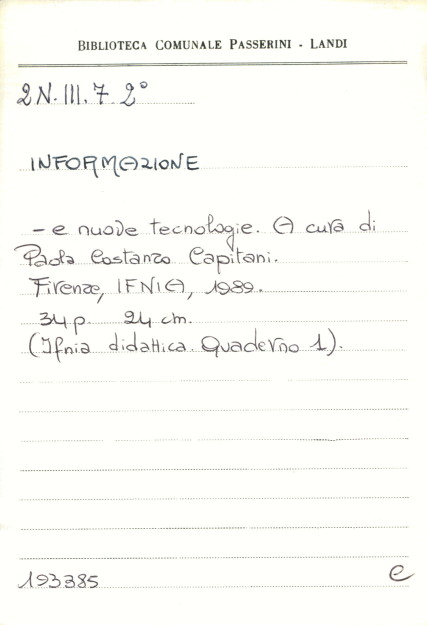 BIBLIOTECA COMUNALE PASSERINI - LANDI
2N.III.7 2°
INFORMAZIONE
- e nuove tecnologie. A cura di
Paola Costanzo Capitani.
Firenze, IFNIA, 1989.
34 p. 24 cm.
(Ifnia didattica. Quaderno 1).
193385 e